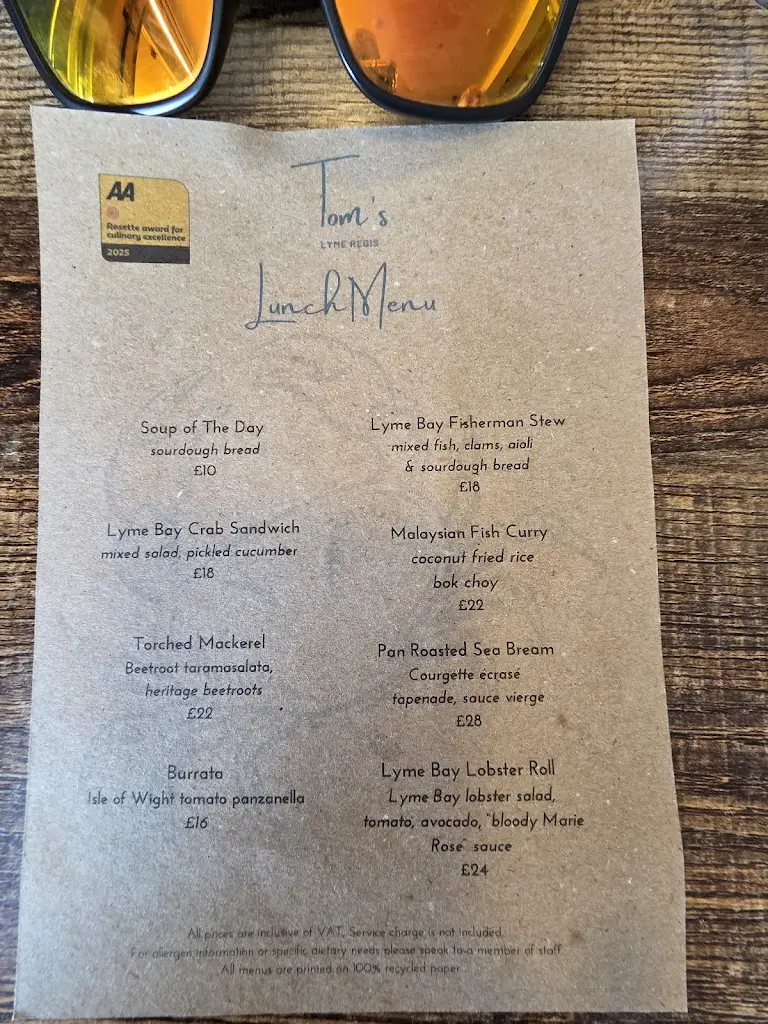 AA
Rosette award for
culinary excellence
2025
Tom's
LYME REGIS
Lunch Menu
Soup of The Day
sourdough bread
£10
Lyme Bay Crab Sandwich
mixed salad, pickled cucumber
£18
Torched Mackerel
Beetroot taramasalata,
heritage beetroots
£22
Burrata
Isle of Wight tomato panzanella
£16
Lyme Bay Fisherman Stew
mixed fish, clams, aioli
& sourdough bread
£18
Malaysian Fish Curry
coconut fried rice
bok choy
£22
Pan Roasted Sea Bream
Courgette écrasé
tapenade, sauce vierge
£28
Lyme Bay Lobster Roll
Lyme Bay lobster salad,
tomato, avocado, "bloody Marie
Rose" sauce
£24
All prices are inclusive of VAT, Service charge is not included.
For allergen information or specific dietary needs please speak to a member of staff
All menus are printed on 100% recycled paper